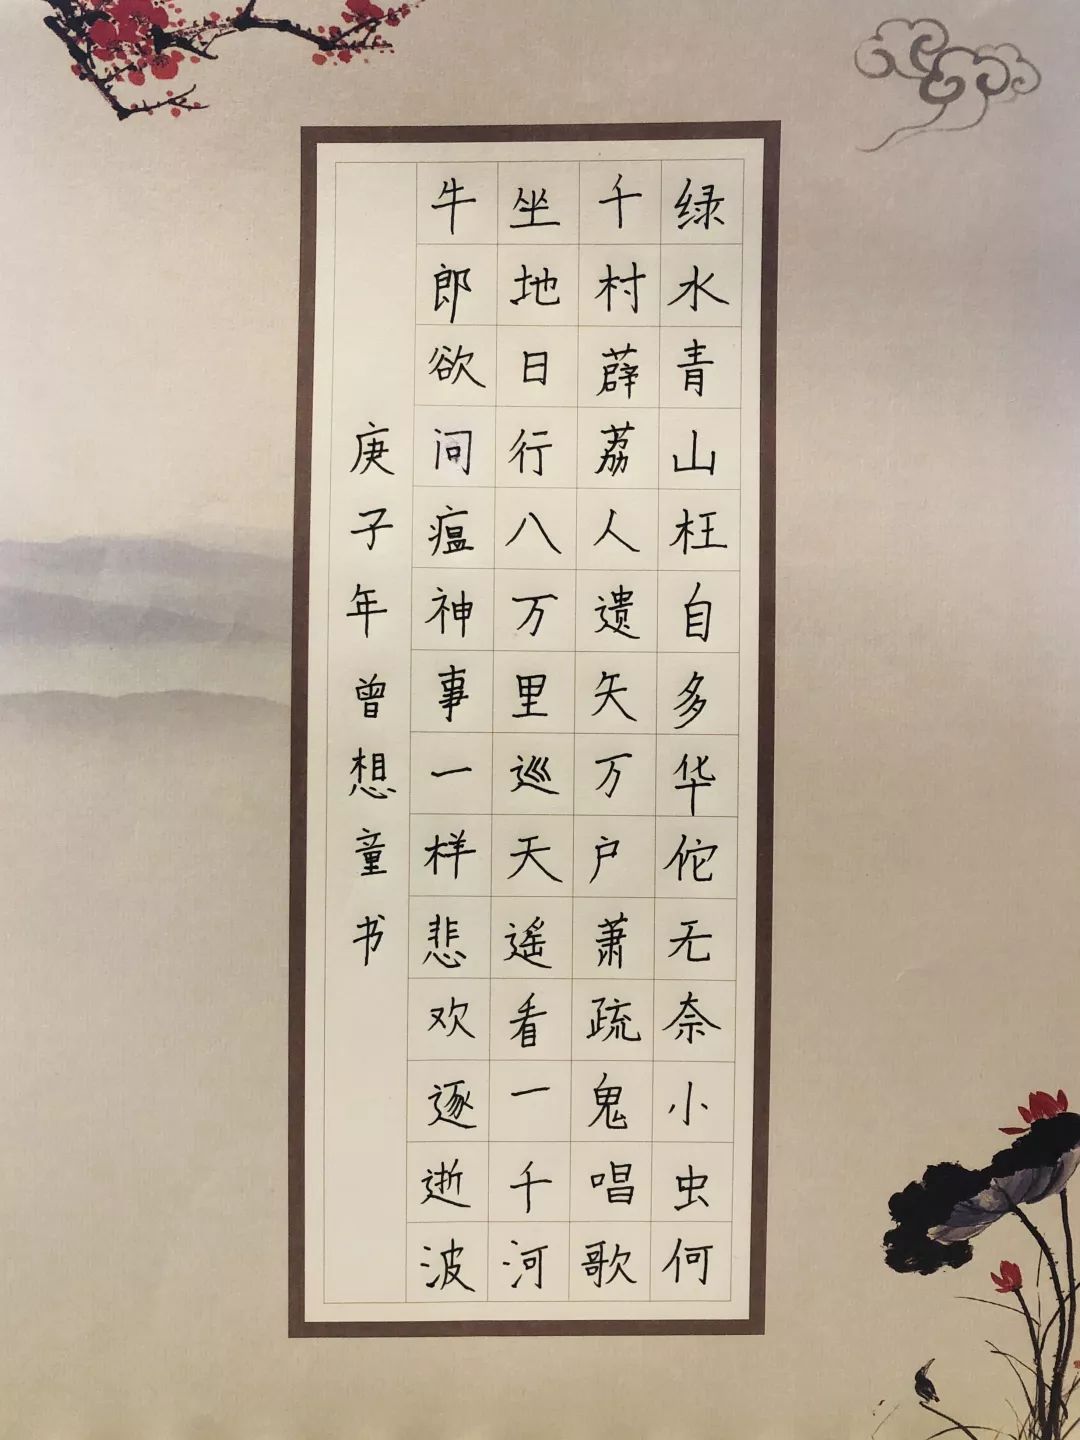 绿水青山枉自多华佗无奈小虫何
千村薜荔人遗矢万户萧疏鬼唱歌
坐地日行八万里巡天遥看一千河
牛郎欲问瘟神事一样悲欢逐逝波
庚子年曾想童书